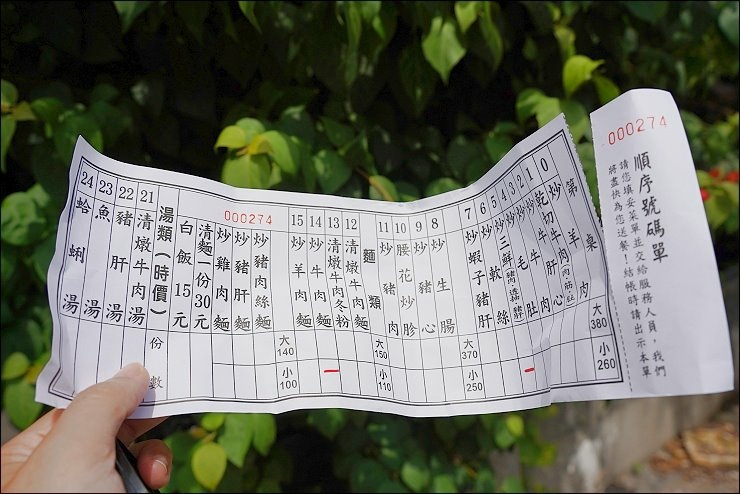 000274
順序號碼單
請您填妥菜單並交給服務人員，我們
將盡快為您送餐！結帳時請出示本單
第 桌
0 炒羊肉
大380
小260
1 乾切牛肉
2 炒牛肝
3 炒毛肚
4
5
6 炒軟絲
7 炒蝦子
炒豬肝
大370
小250
8 炒生腸
9 炒豬心
10 腰花炒胗
11 炒豬肉
大150
小110
麵類
12 清燉牛肉麵
13 清燉牛肉冬粉
14 炒牛肉麵
15 炒羊肉麵
大140
小100
000274
炒豬肉絲麵
炒豬肝麵
炒雞肉麵
清麵一份30元
白飯15元
湯類（時價）
份數
21 清燉牛肉湯
22 豬肝湯
23 魚湯
24 蛤蜊湯